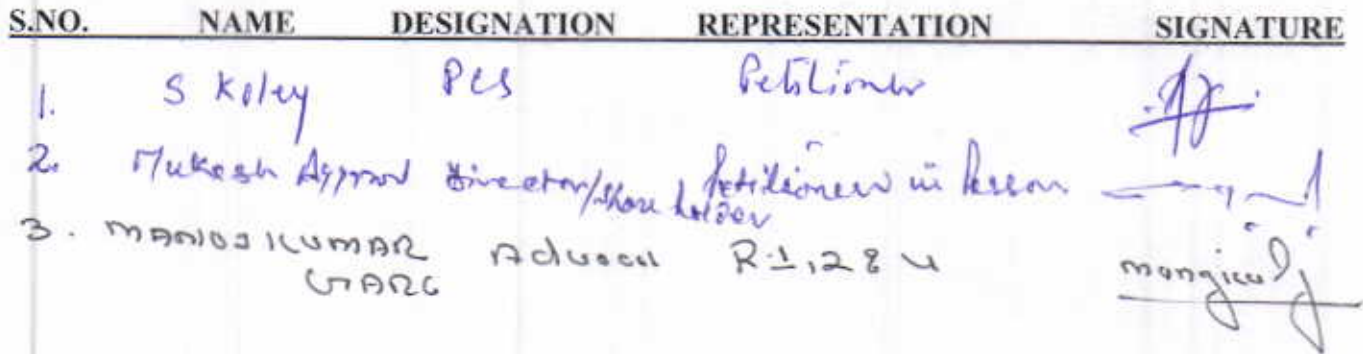 S.NO. NAME DESIGNATION REPRESENTATION SIGNATURE
1. S Koley PCS Petitioner
2. Mukesh Director/Share holder Petitioner in Person
3. MANOJ KUMAR Advocate R-1, 2 & 4
GARG